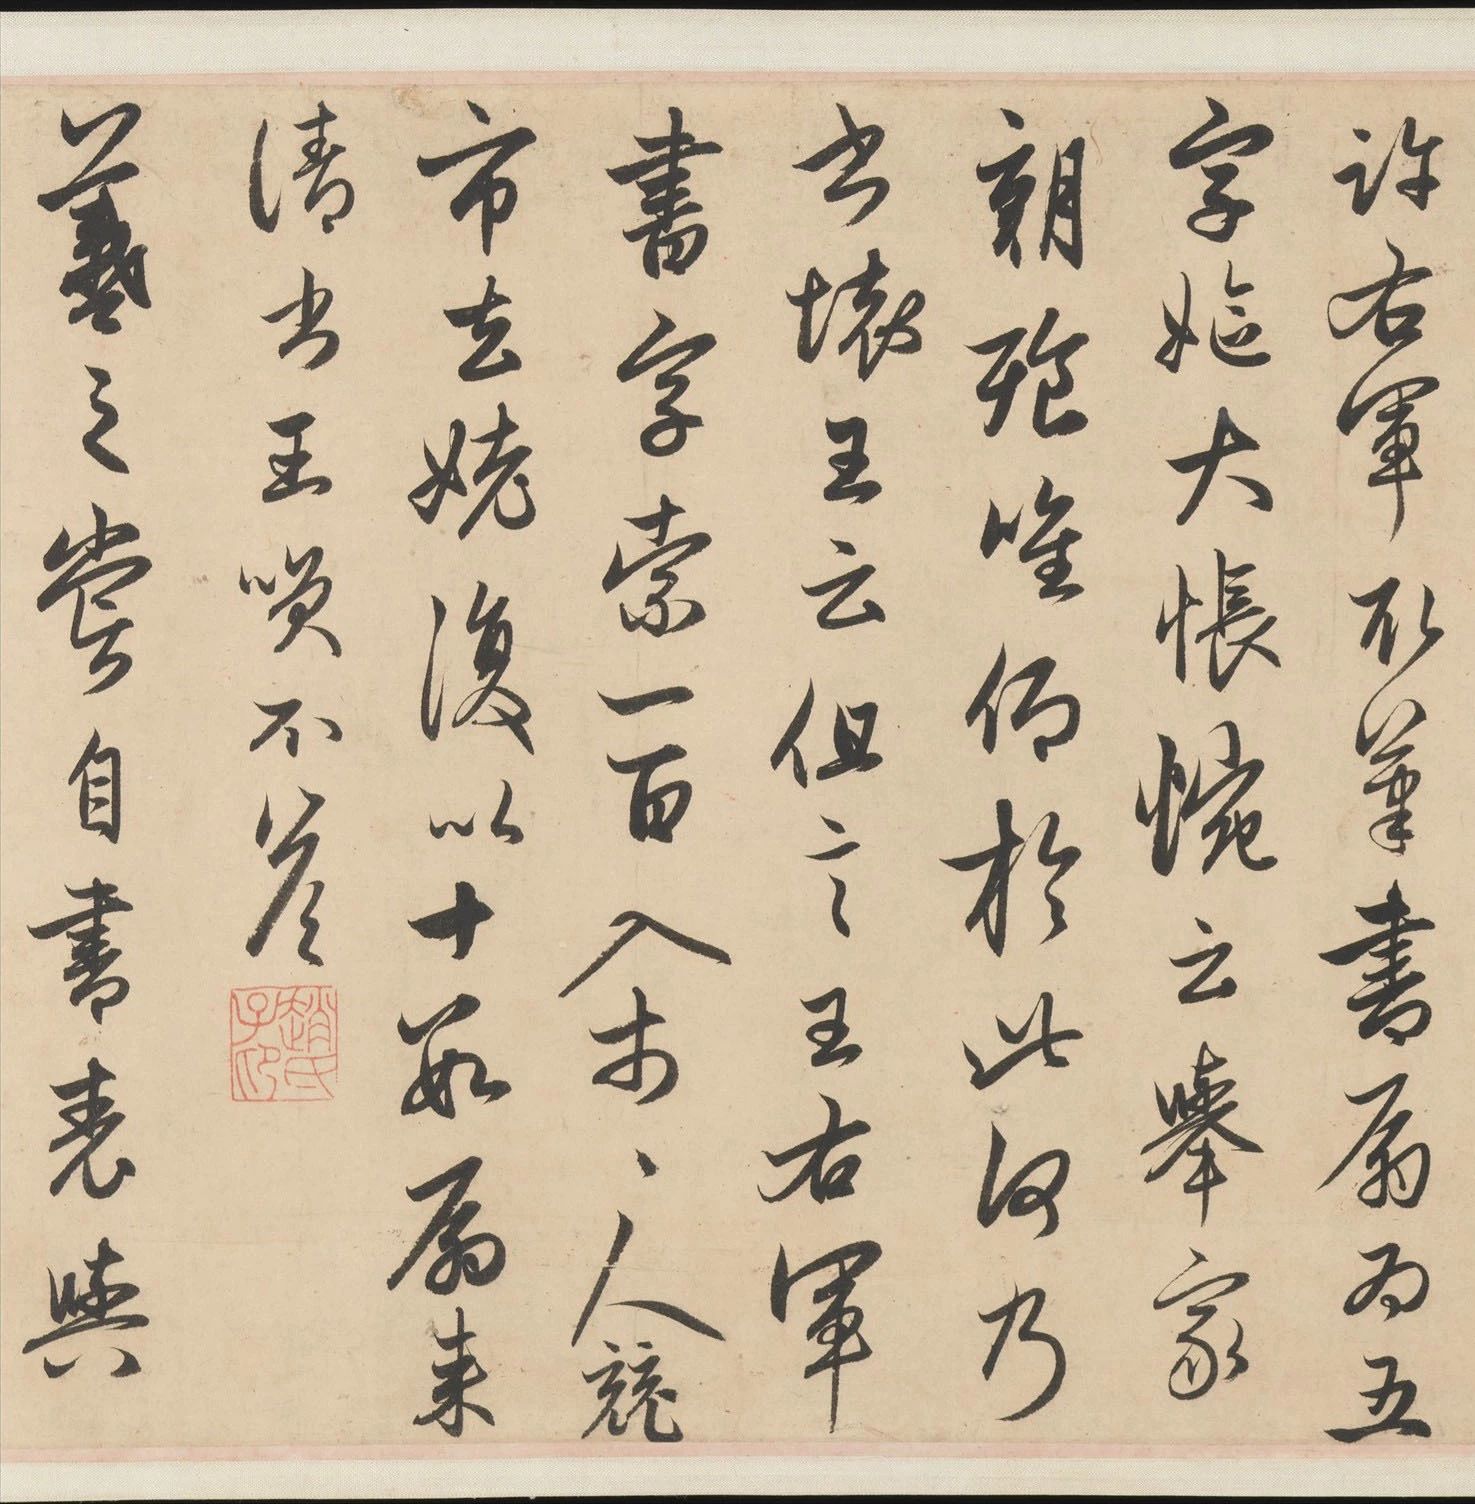 許右軍取筆書扇爲五
字嫗大悵惋云舉家
朝飱唯仰於此何乃
書壞王云但言王右軍
書字索一百入市市人競
市去姥復以十數扇來
請書王笑不答
羲之嘗自書表與
趙氏子印